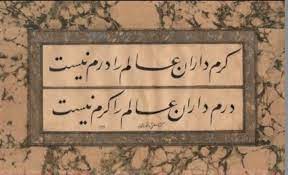 کرم داران عالم را درم نیست
درم داران عالم را کرم نیست